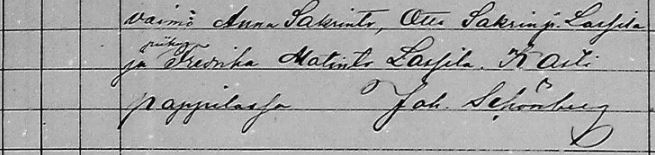 vaimo Anna Sakrintr, Otto Sakrinp. Lassila
ja Fredrika Matintr Lassila. Kasti
pappilassa Joh. Schönberg